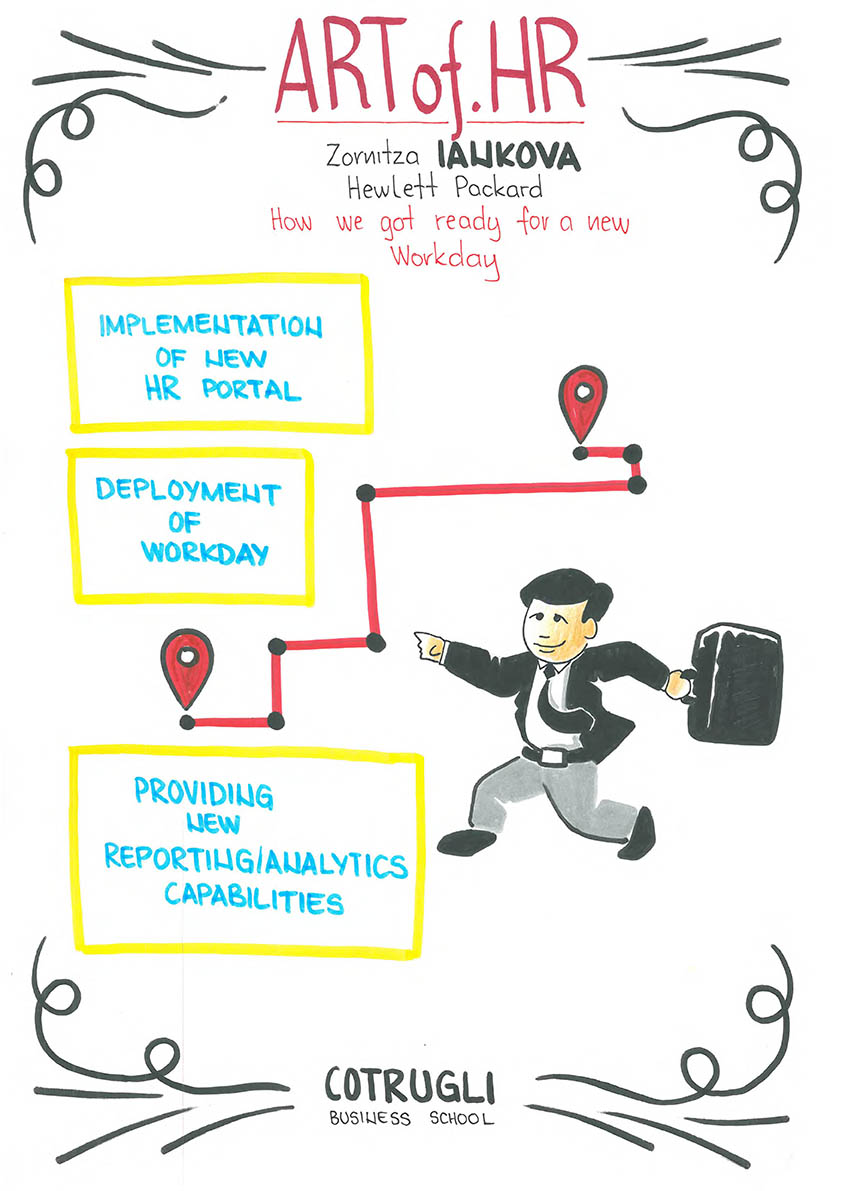 ART of.HR
Zornitza IANKOVA
Hewlett Packard
How we got ready for a new
Workday
IMPLEMENTATION
OF NEW
HR PORTAL
DEPLOYMENT
OF
WORKDAY
PROVIDING
NEW
REPORTING/ANALYTICS
CAPABILITIES
COTRUGLI
BUSINESS SCHOOL